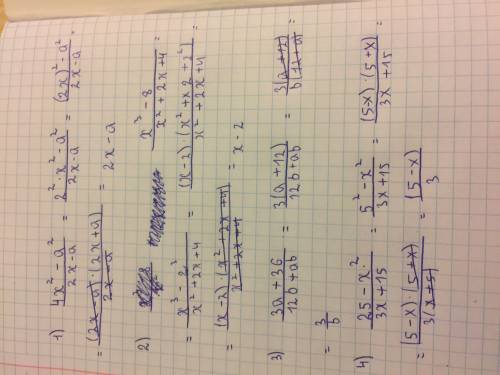 1) (4x² - a²)/(2x - a) = (2² · x² - a²)/(2x - a) = ((2x)² - a²)/(2x - a) =
= ((2x - a) · (2x + a))/(2x - a) = 2x - a
2) (x³ - 8)/(x² + 2x + 4) =
= (x³ - 2³)/(x² + 2x + 4) = ((x - 2)(x² + x2 + 2²))/(x² + 2x + 4) =
= ((x - 2)(x² + 2x + 4))/(x² + 2x + 4) = x - 2
3) (3a + 36)/(12b + ab) = (3(a + 12))/(12b + ab) = (3(a + 12))/(b(12 + a)) =
= 3/b
4) (25 - x²)/(3x + 15) = (5² - x²)/(3x + 15) = ((5 - x) · (5 + x))/(3x + 15) =
= ((5 - x) · (5 + x))/(3(x + 5)) = (5 - x)/3